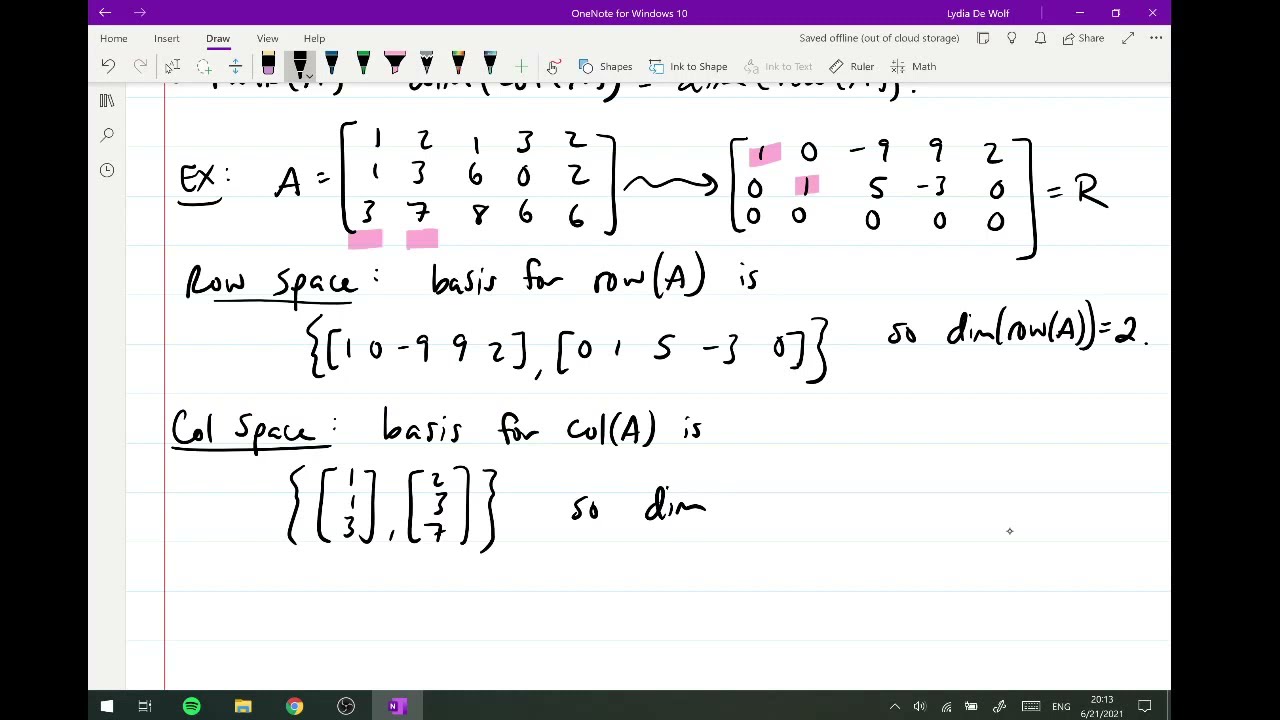 OneNote for Windows 10
Lydia De Wolf
Home Insert Draw View Help
Saved offline (out of cloud storage)
Share
Shapes Ink to Shape Ink to Text Ruler Math
EX: A = [ 1 2 1 3 2
1 3 6 0 2
3 7 8 6 6 ]
[ 1 0 -9 9 2
0 1 5 -3 0
0 0 0 0 0 ] = R
Row Space: basis for row(A) is
{[1 0 -9 9 2], [0 1 5 -3 0]} so dim(row(A))=2.
Col Space: basis for col(A) is
{ [ 1 1 3 ], [ 2 3 7 ] } so dim
ENG
20:13
6/21/2021